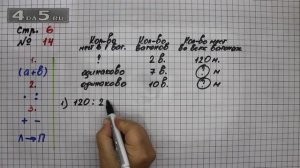 4da5.ru
Стр. 6
№ 14
1.
(а+в)
2.
· :
3.
+ -
Л → П
Кол-во мест в 1 ваг.
Кол-во вагонов
Кол-во мест во всех вагонах
?
2 в.
120 м.
одинаково
7 в.
? м
одинаково
10 в.
? м
1) 120 : 2